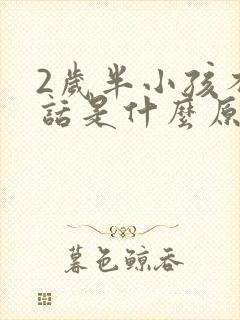 2歲半小孩不
話是什麼原
暮色鯨吞